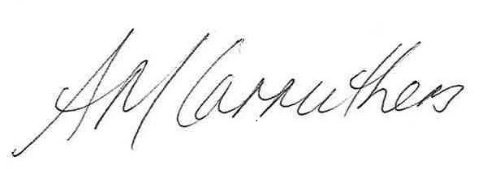 AM Carruthers